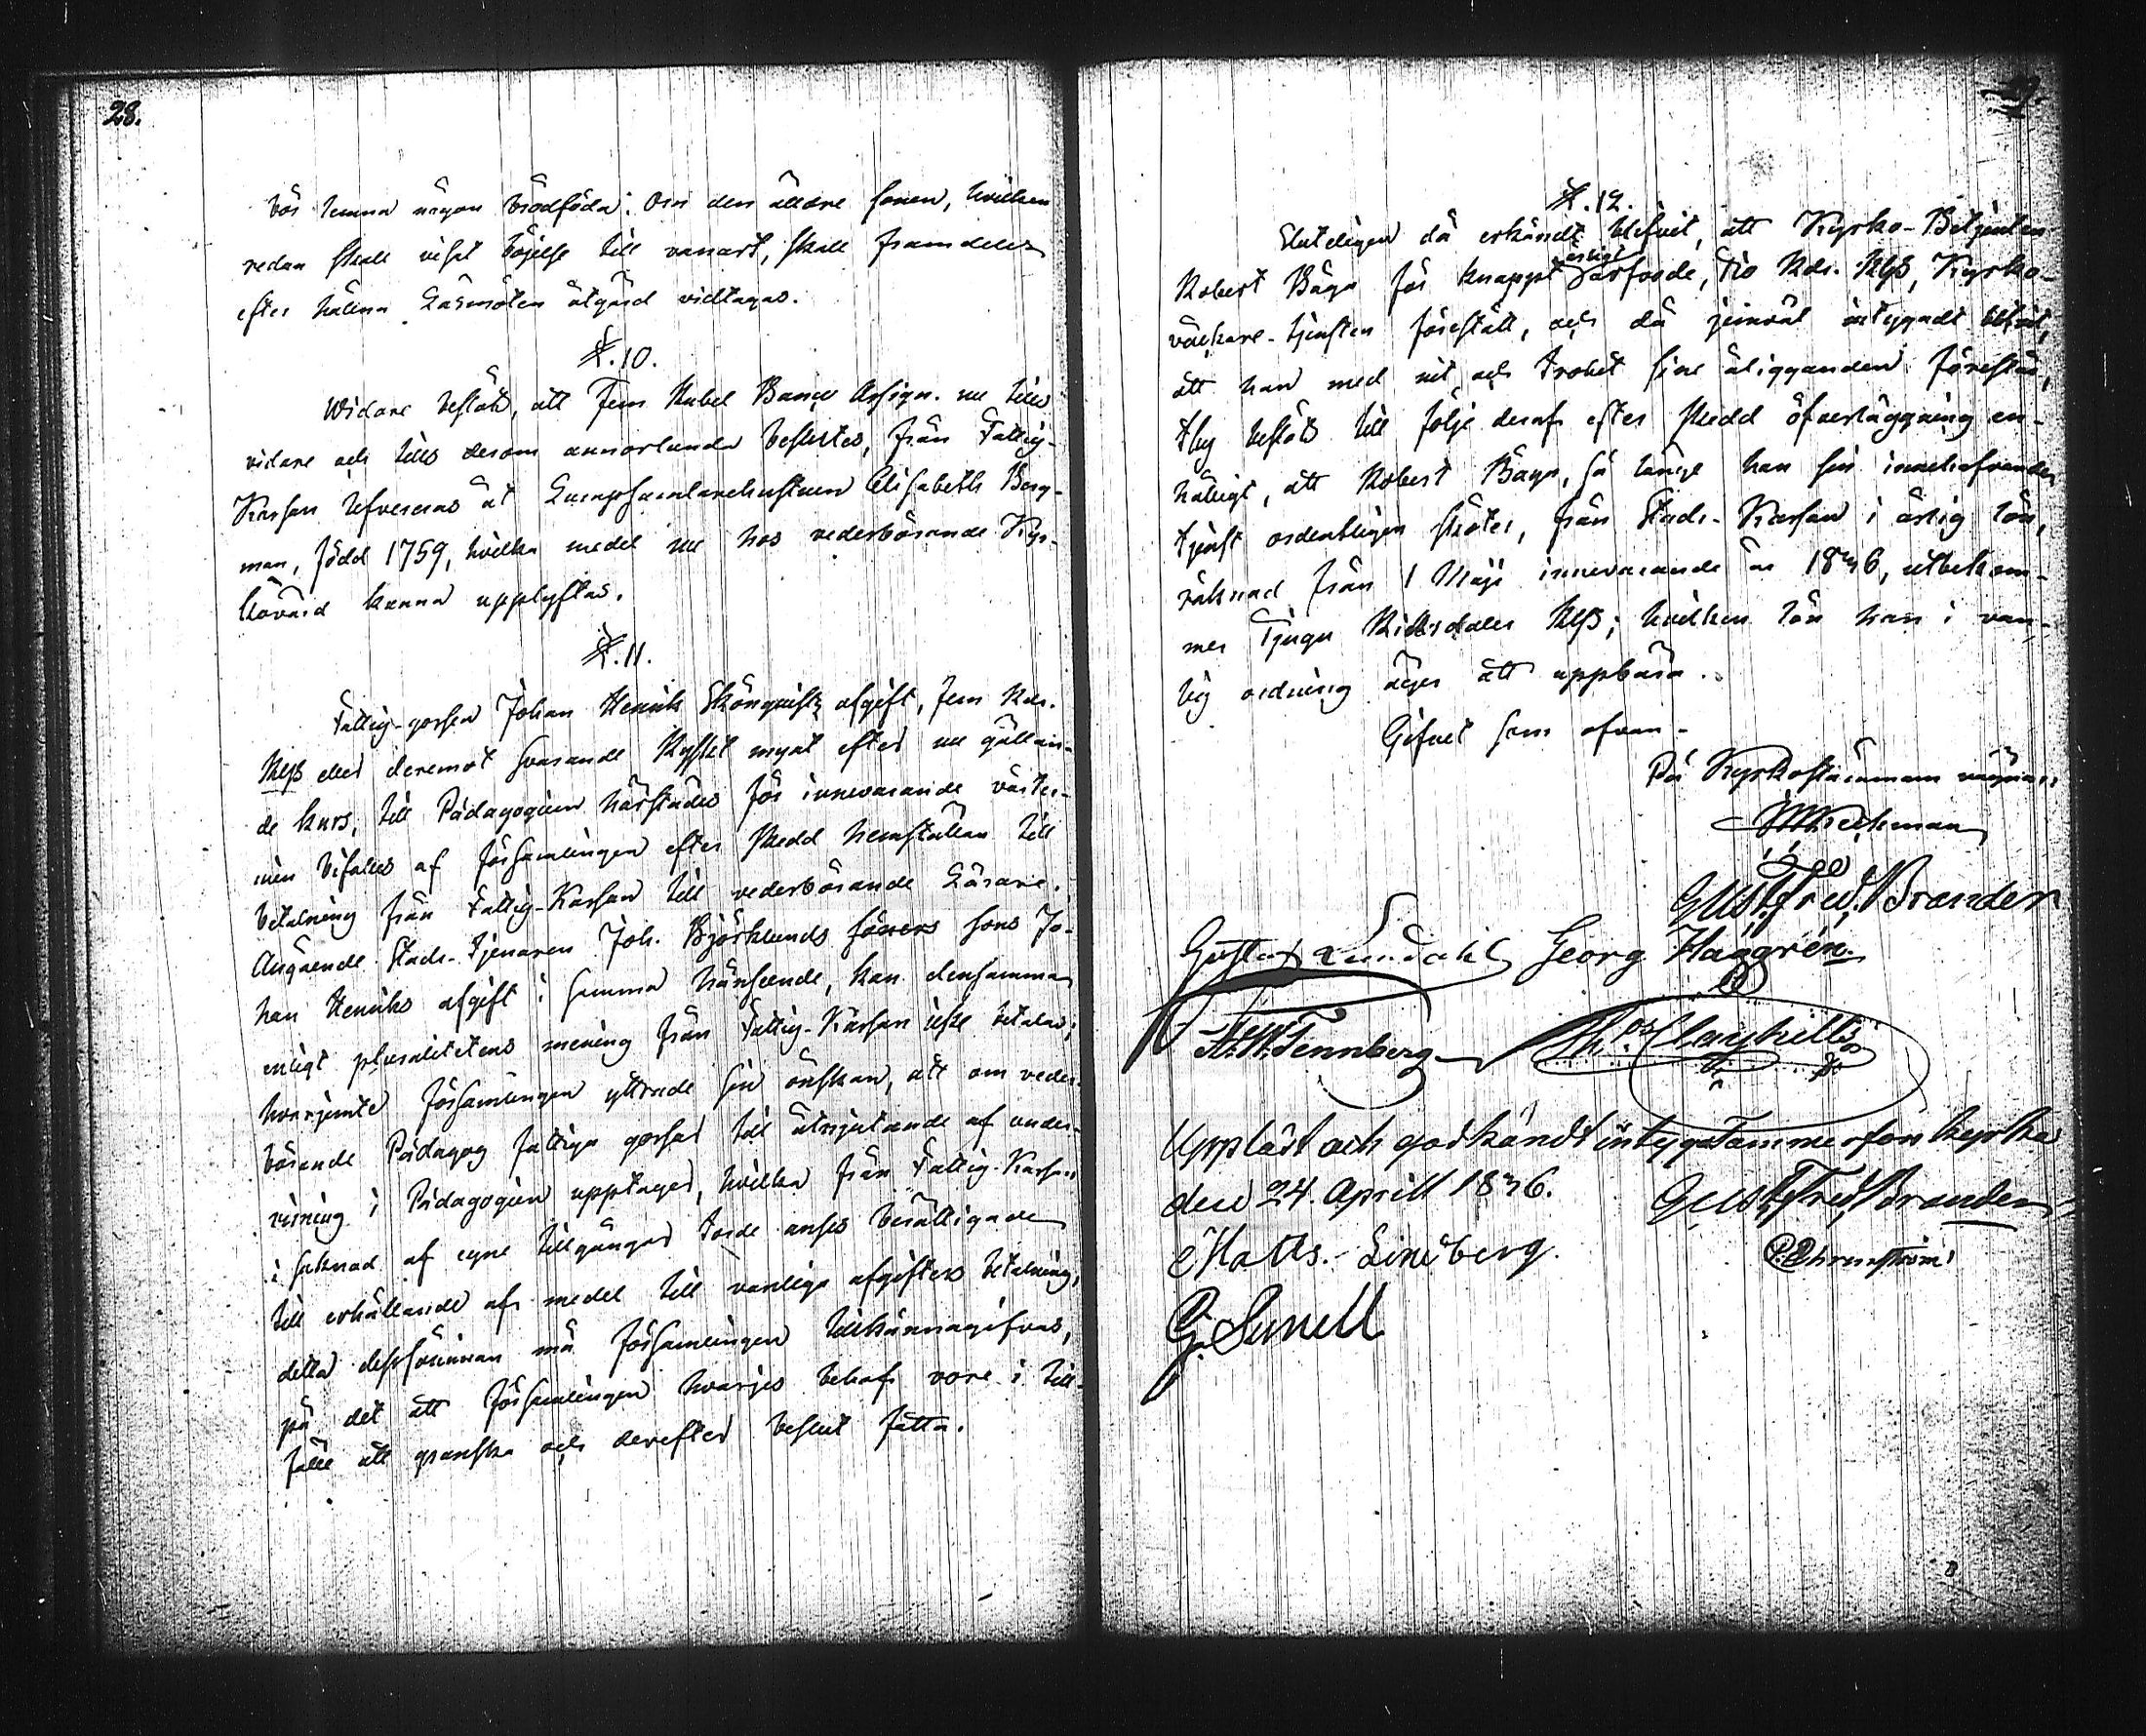 28.
bör kunna någon brödföda: Om den äldre sonen, hvilken
redan skall visat böjelse till vanart, skall framdeles
efter hållna Läsmöten åtgärd vidtagas.
§. 10.
Widare beslöts, att Fem Rubel Banco Assign. nu tills
vidare och tills derom annorlunda beslutes, från Fattig-
Kassan lefvereras åt Lumpsamlarehustrun Elisabeth Berg-
man, född 1759, hvilka medel nu hos vederbörande Kyr-
kovärd kunna upplyftas.
§. 11.
Fattig-gossen Johan Henrik Skönqvists afgift, fem Rdr.
Rgs eller deremot svarande Ryskt mynt efter nu gällan-
de kurs, till Pädagogien härstädes för innevarande vårter-
min bifalles af församlingen efter skedd hemställan till
betalning från Fattig-Kassan till vederbörande Lärare.
Angående Stads-Tjenaren Joh. Björklunds sonens Jo-
han Henriks afgift i samma hänseende, kan densamma
enligt pluralitetens mening från Fattig-Kassan icke betalas;
hvarjemte församlingen yttrade sin önskan, att om veder-
börande Pädagog fattiga gossar till åtnjutande af under-
visning i Pädagogien upptager, hvilka från Fattig-Kassan
i saknad af egne tillgångar torde anses berättigade
till erhållande af medel till vanliga afgifters betalning,
detta dessförinnan må församlingen tillkännagifvas,
på det att församlingen hvarjes behof vore i till-
fälle att granska och derefter beslut fatta.
29.
§. 12.
Sluteligen då erkändt blifvit, att Kyrko-Betjenten
Robert Båga för knappt årligt arfvode, Tio Rdr. Rgs, Kyrko-
väckare-tjensten förestått, och då jemväl intygadt blifvit,
att han med nit och trohet sine åligganden förestår,
thy beslöts till följe deraf efter skedd öfverläggning en-
hälligt, att Robert Båga, så länge han sin innehafvande
tjenst ordentligen sköter, från Stads-Kassan i årlig lön,
räknad från 1 Maji innevarande år 1836, utbekom-
mer Tjugu Riksdaler Rgs; hvilken lön han i van-
lig ordning äger att uppbära.
Gifvet som ofvan.
På Kyrkostämmans vägnar:
Gust. Fred. Brander
Gustaf Lundahl Georg Häggrén.
Fr. W. Tennberg Th:or Clayhills
Uppläst och godkändt intyga Tammerfors kyrka
den 24. Aprill 1836. Gust. Fred. Brander
Matts. Lineberg. P. Ehrnström
G. Sunell